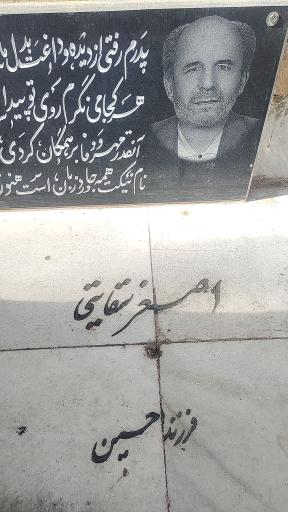 پدرم رفتی از دیده و داغت بدل ما
هر کجا می نگرم روی تو پیدا
آنقدر مهر و وفا بر همگان کردی
نام نیکت همه جا ورد زبان است هنوز
اصغر سقایتی
فرزند حسین